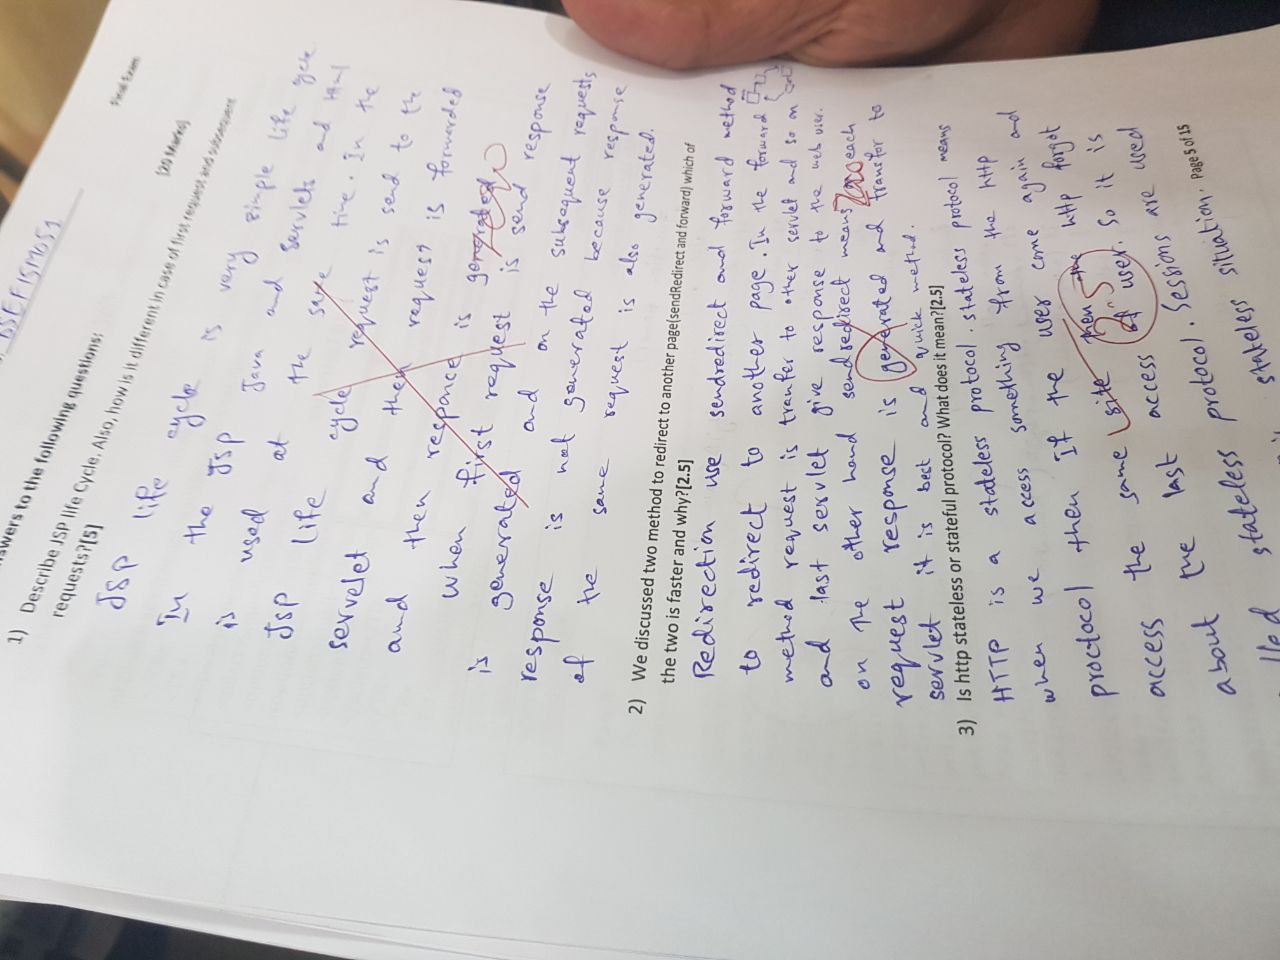 BSEF15M051
swers to the following questions:
Final Exam
[20 Marks]
1) Describe JSP life Cycle. Also, how is it different in case of first request and subsequent
requests?[5]
JSP life cycle is very simple life cycle
In the JSP Java and Servlets and Html
is used at the same time. In the
JSP life cycle request is send to the
servelet and then request is forwarded
and then responce is generated.
zero
when first request is send response
is generated and on the subsequent requests
response is not generated because response
of the same request is also generated.
2) We discussed two method to redirect to another page(sendRedirect and forward) which of
the two is faster and why?[2.5]
Redirection use sendredirect and forward method
to redirect to another page. In the forward
method request is tranfer to other servlet and so on
and last servlet give response to the web user.
on the other hand sendredirect means each
zero
request response is generated and transfor to
servlet it is best and quick method.
3) Is http stateless or stateful protocol? What does it mean?[2.5]
HTTP is a stateless protocol. stateless protocol means
when we access something from the http
proctocol then If the user come again and
access the same site then the http forgot
2.5
about the last access of user. So it is
lled stateless protocol. Sessions are used
stateless situation.
Page 5 of 15